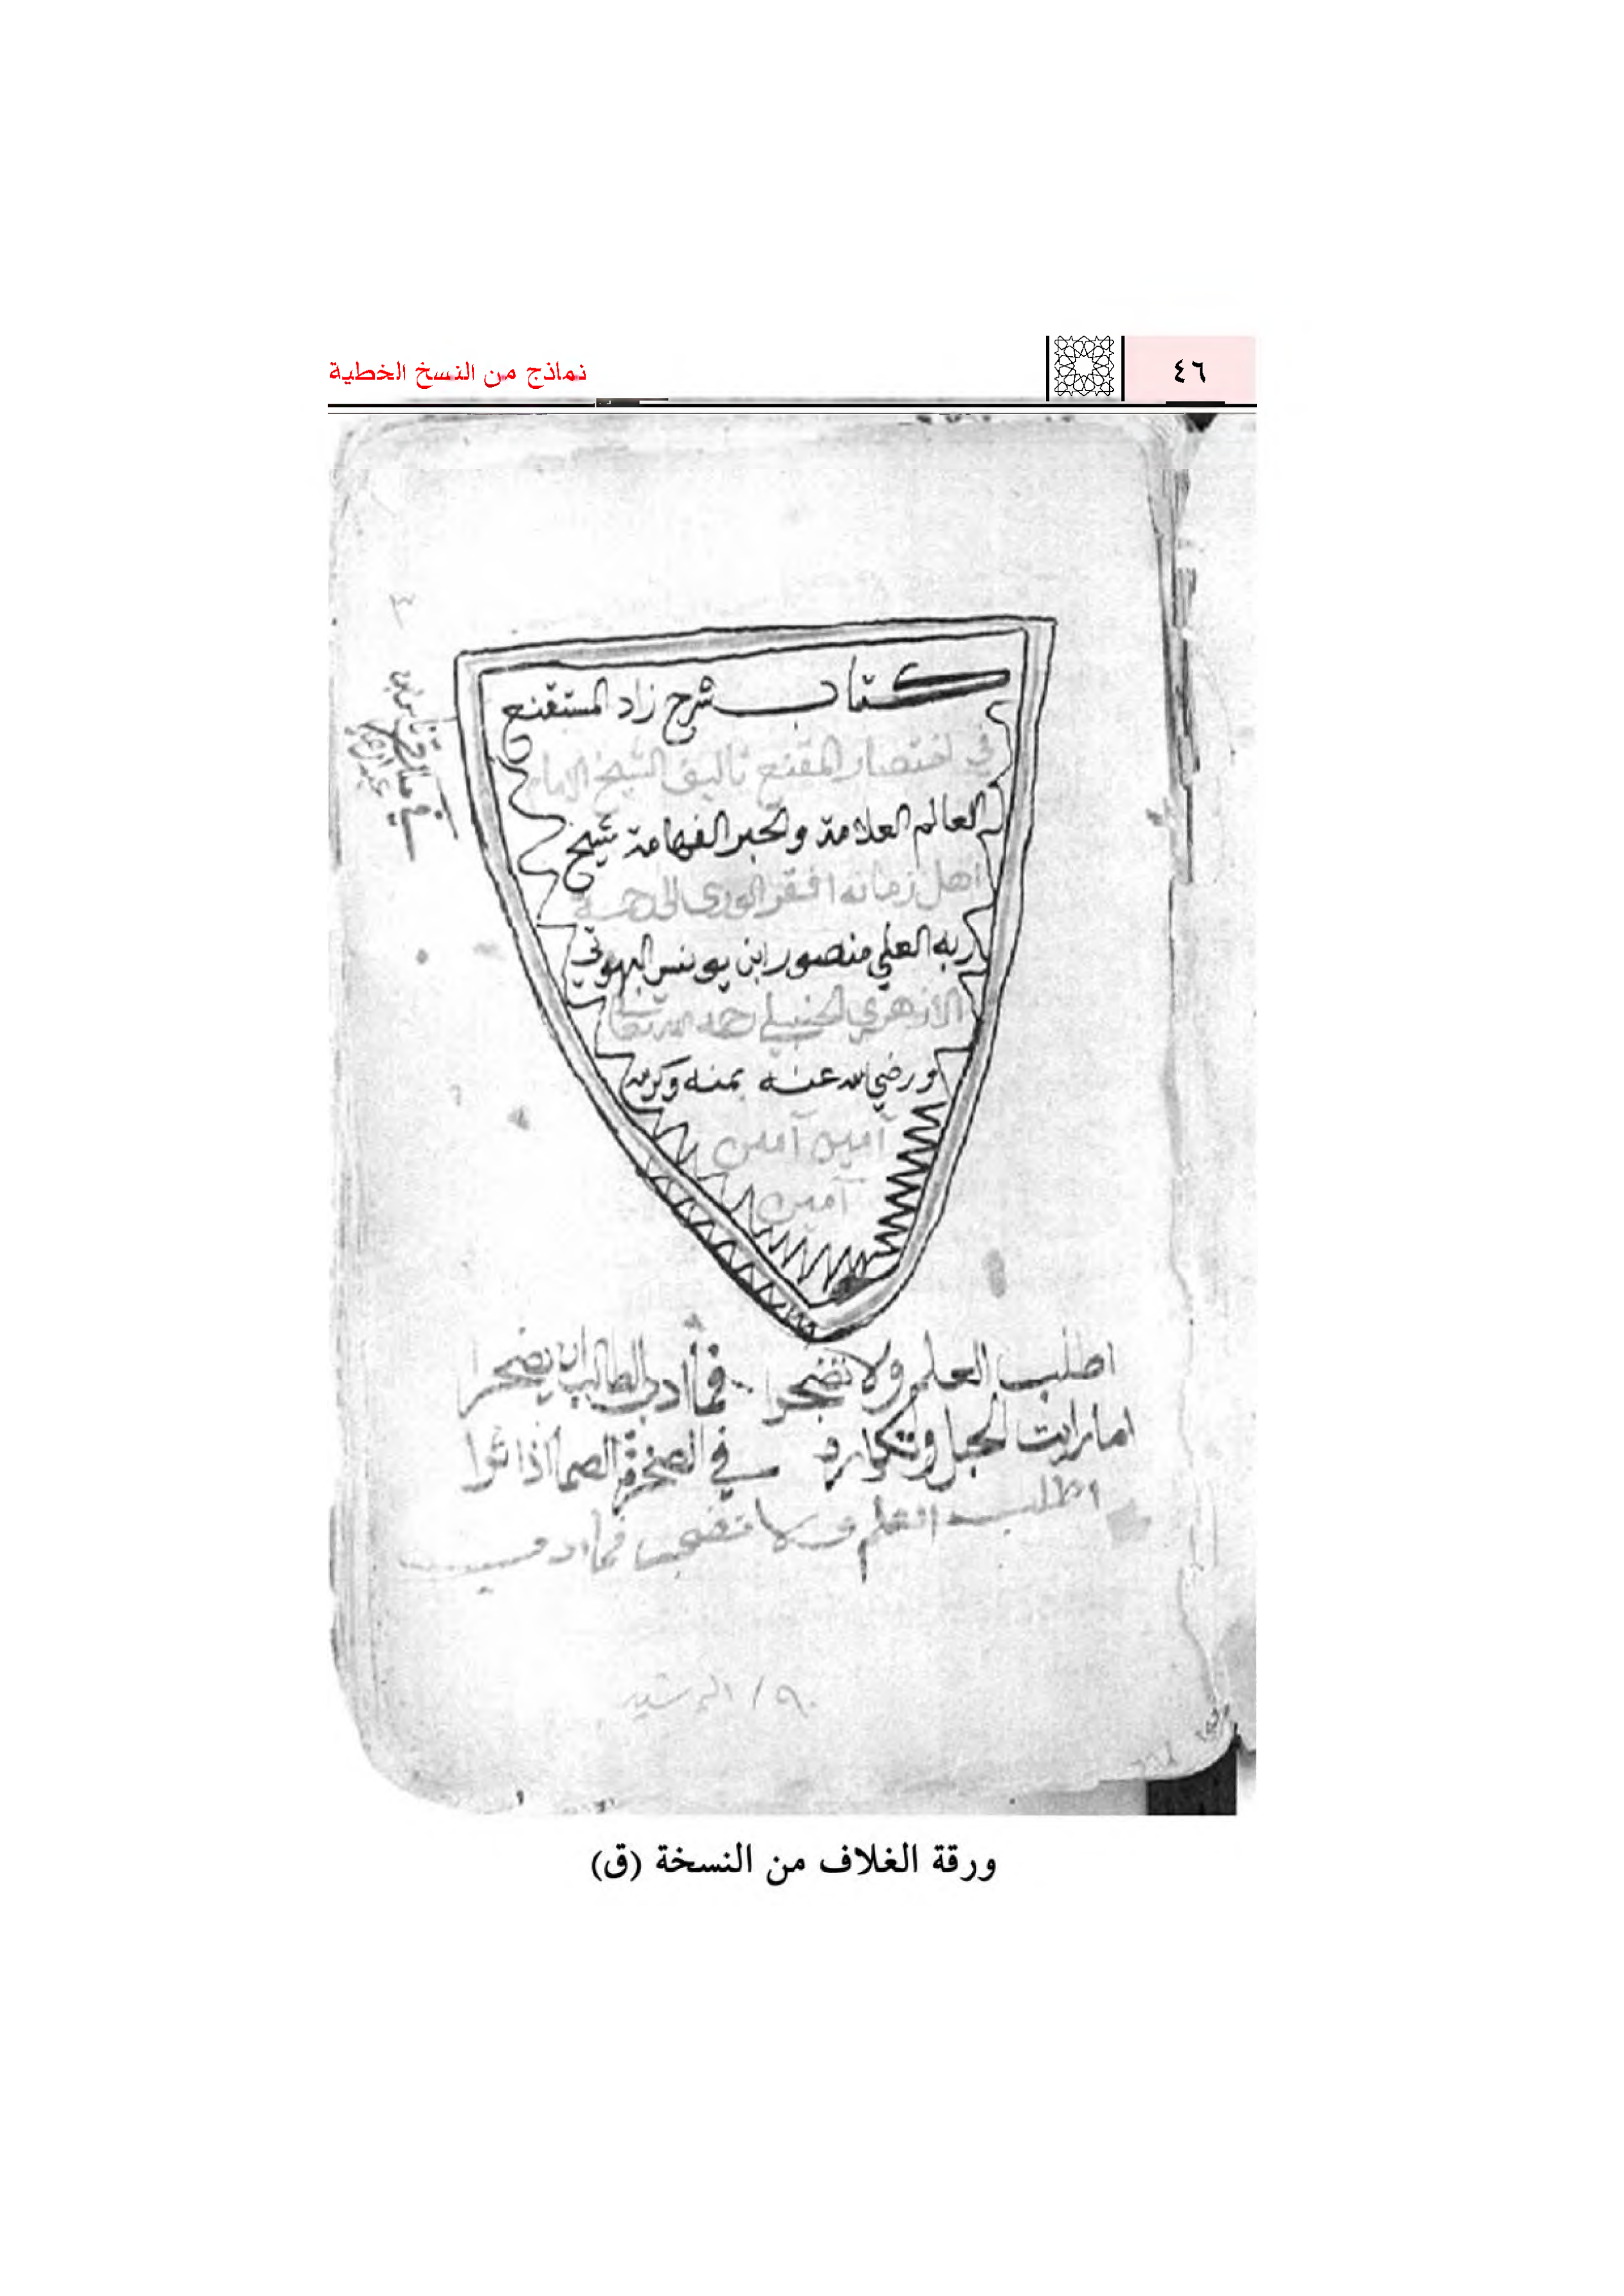 ٤٦
نماذج من النسخ الخطية
٣
كتاب شرح زاد المستقنع
في اختصار المقنع تاليف الشيخ الامام
العالم العلامة والحبر الفهامة شيخ
اهل زمانه افقر الورى الى رحمة
ربه العلي منصور ابن يونس البهوتي
الأزهري الحنبلي رحمه الله تعالى
ورضي الله عنه بمنه وكرمه
آمين آمين
آمين
اطلب العلم ولا تضجرا فما أدب الطالب ان يضجرا
اما رايت الحبل وتكراره في الصخرة الصما اذا اثرا
اطلب العلم ولا تضجر
ورقة الغلاف من النسخة (ق)